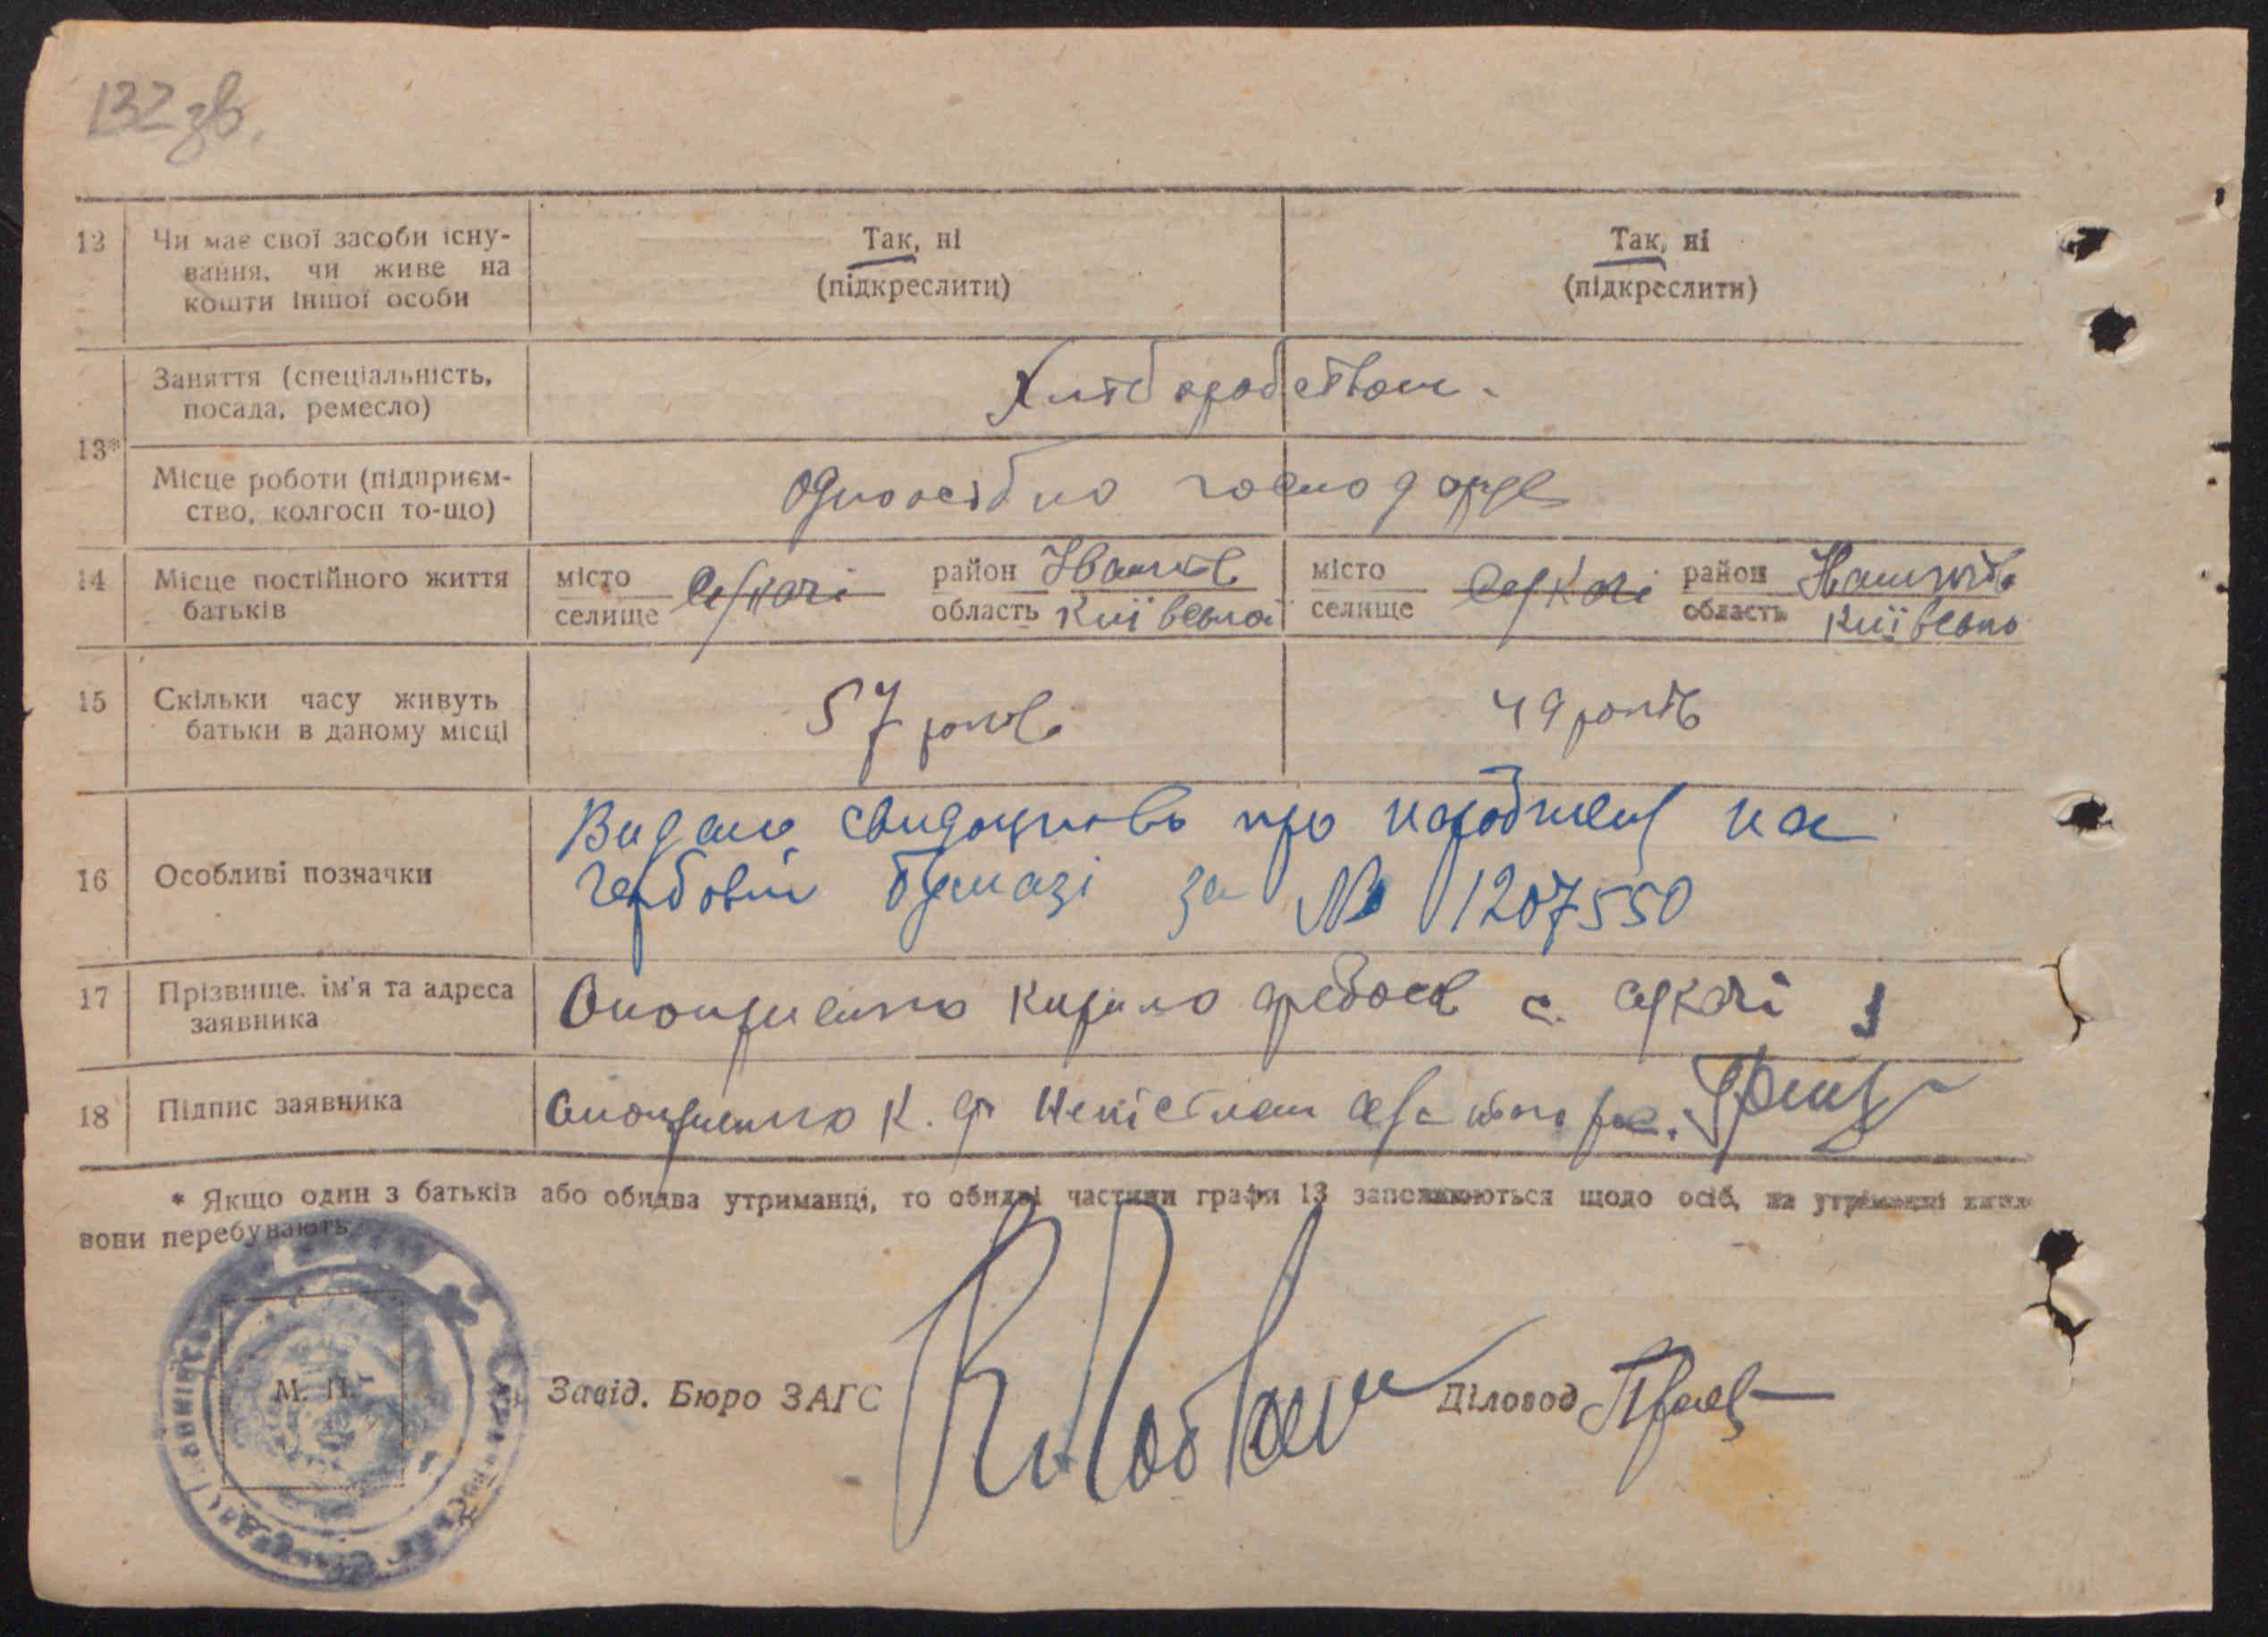 132 зв.
12 Чи має свої засоби існу- Так, ні Так, ні
вання, чи живе на (підкреслити) (підкреслити)
кошти іншої особи
Заняття (спеціальність, Хліборобством.
посада, ремесло)
13*
Місце роботи (підприєм- Одноосібно господарде
ство, колгосп то-що)
14 Місце постійного життя місто район Іванків місто район
батьків селище область Київська селище область Київсько
15 Скільки часу живуть 57 років 49 років
батьки в даному місці
16 Особливі позначки Видано про народження на
гербовій бумазі за № 1207550
17 Прізвище, ім'я та адреса Онопрієнко Кирило с.
заявника
18 Підпис заявника Онопрієнко К. Ф
* Якщо один з батьків або обидва утриманці, то обидві частини графи 13 заповнюються щодо осіб, на утриманні яких
вони перебувають
М. П.
Завід. Бюро ЗАГС Діловод